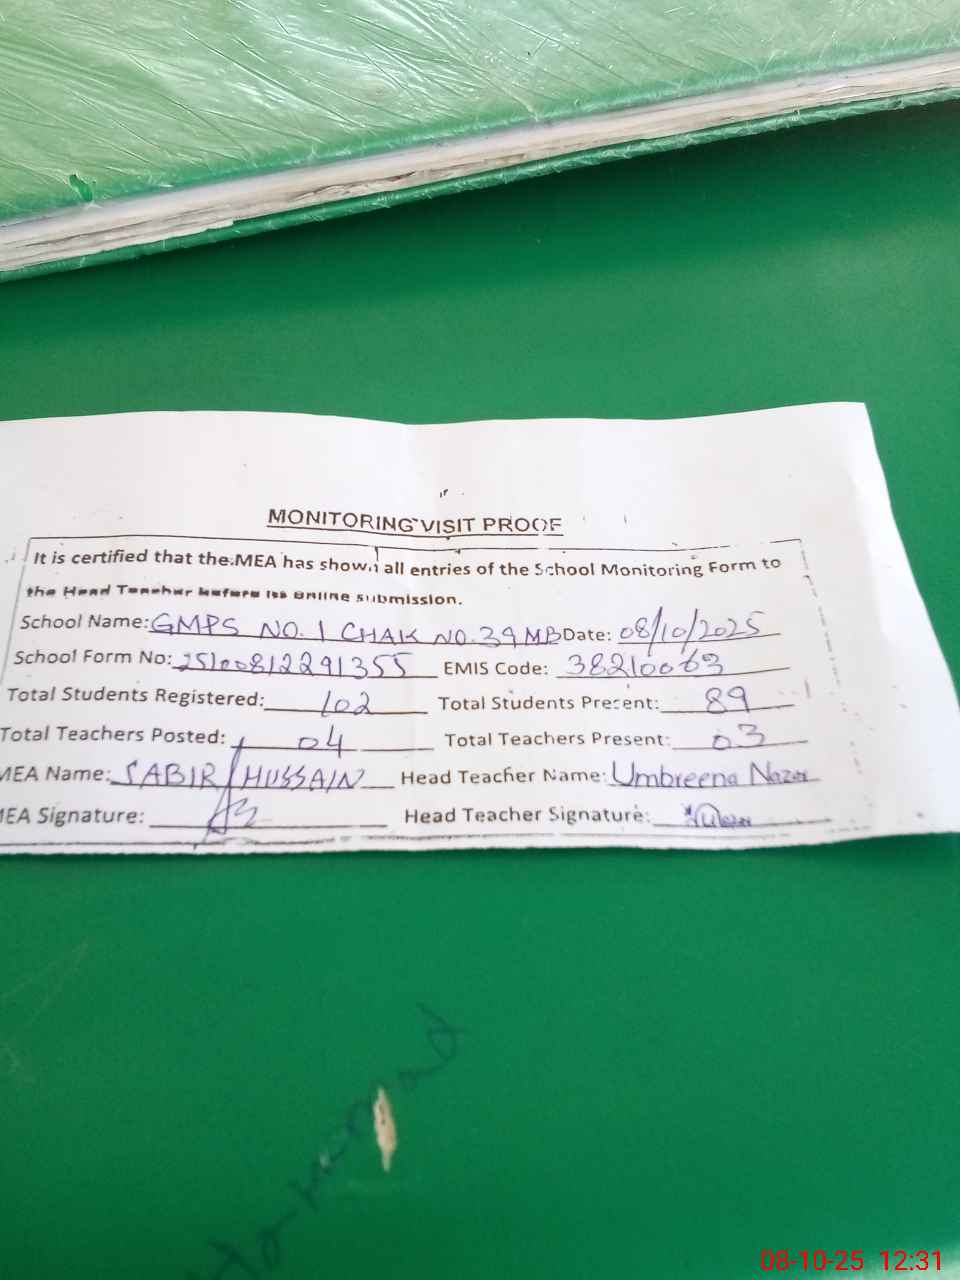 MONITORING VISIT PROOF
It is certified that the MEA has shown all entries of the School Monitoring Form to
the Head Teacher before its online submission.
School Name: GMPS NO. 1 CHAK NO. 39 MB Date: 08/10/2025
School Form No: 25100812291355 EMIS Code: 38210063
Total Students Registered: 102 Total Students Present: 89
Total Teachers Posted: 04 Total Teachers Present: 03
MEA Name: SABIR HUSSAIN Head Teacher Name: Umbreena Nazar
MEA Signature: Head Teacher Signature:
08-10-25 12:31